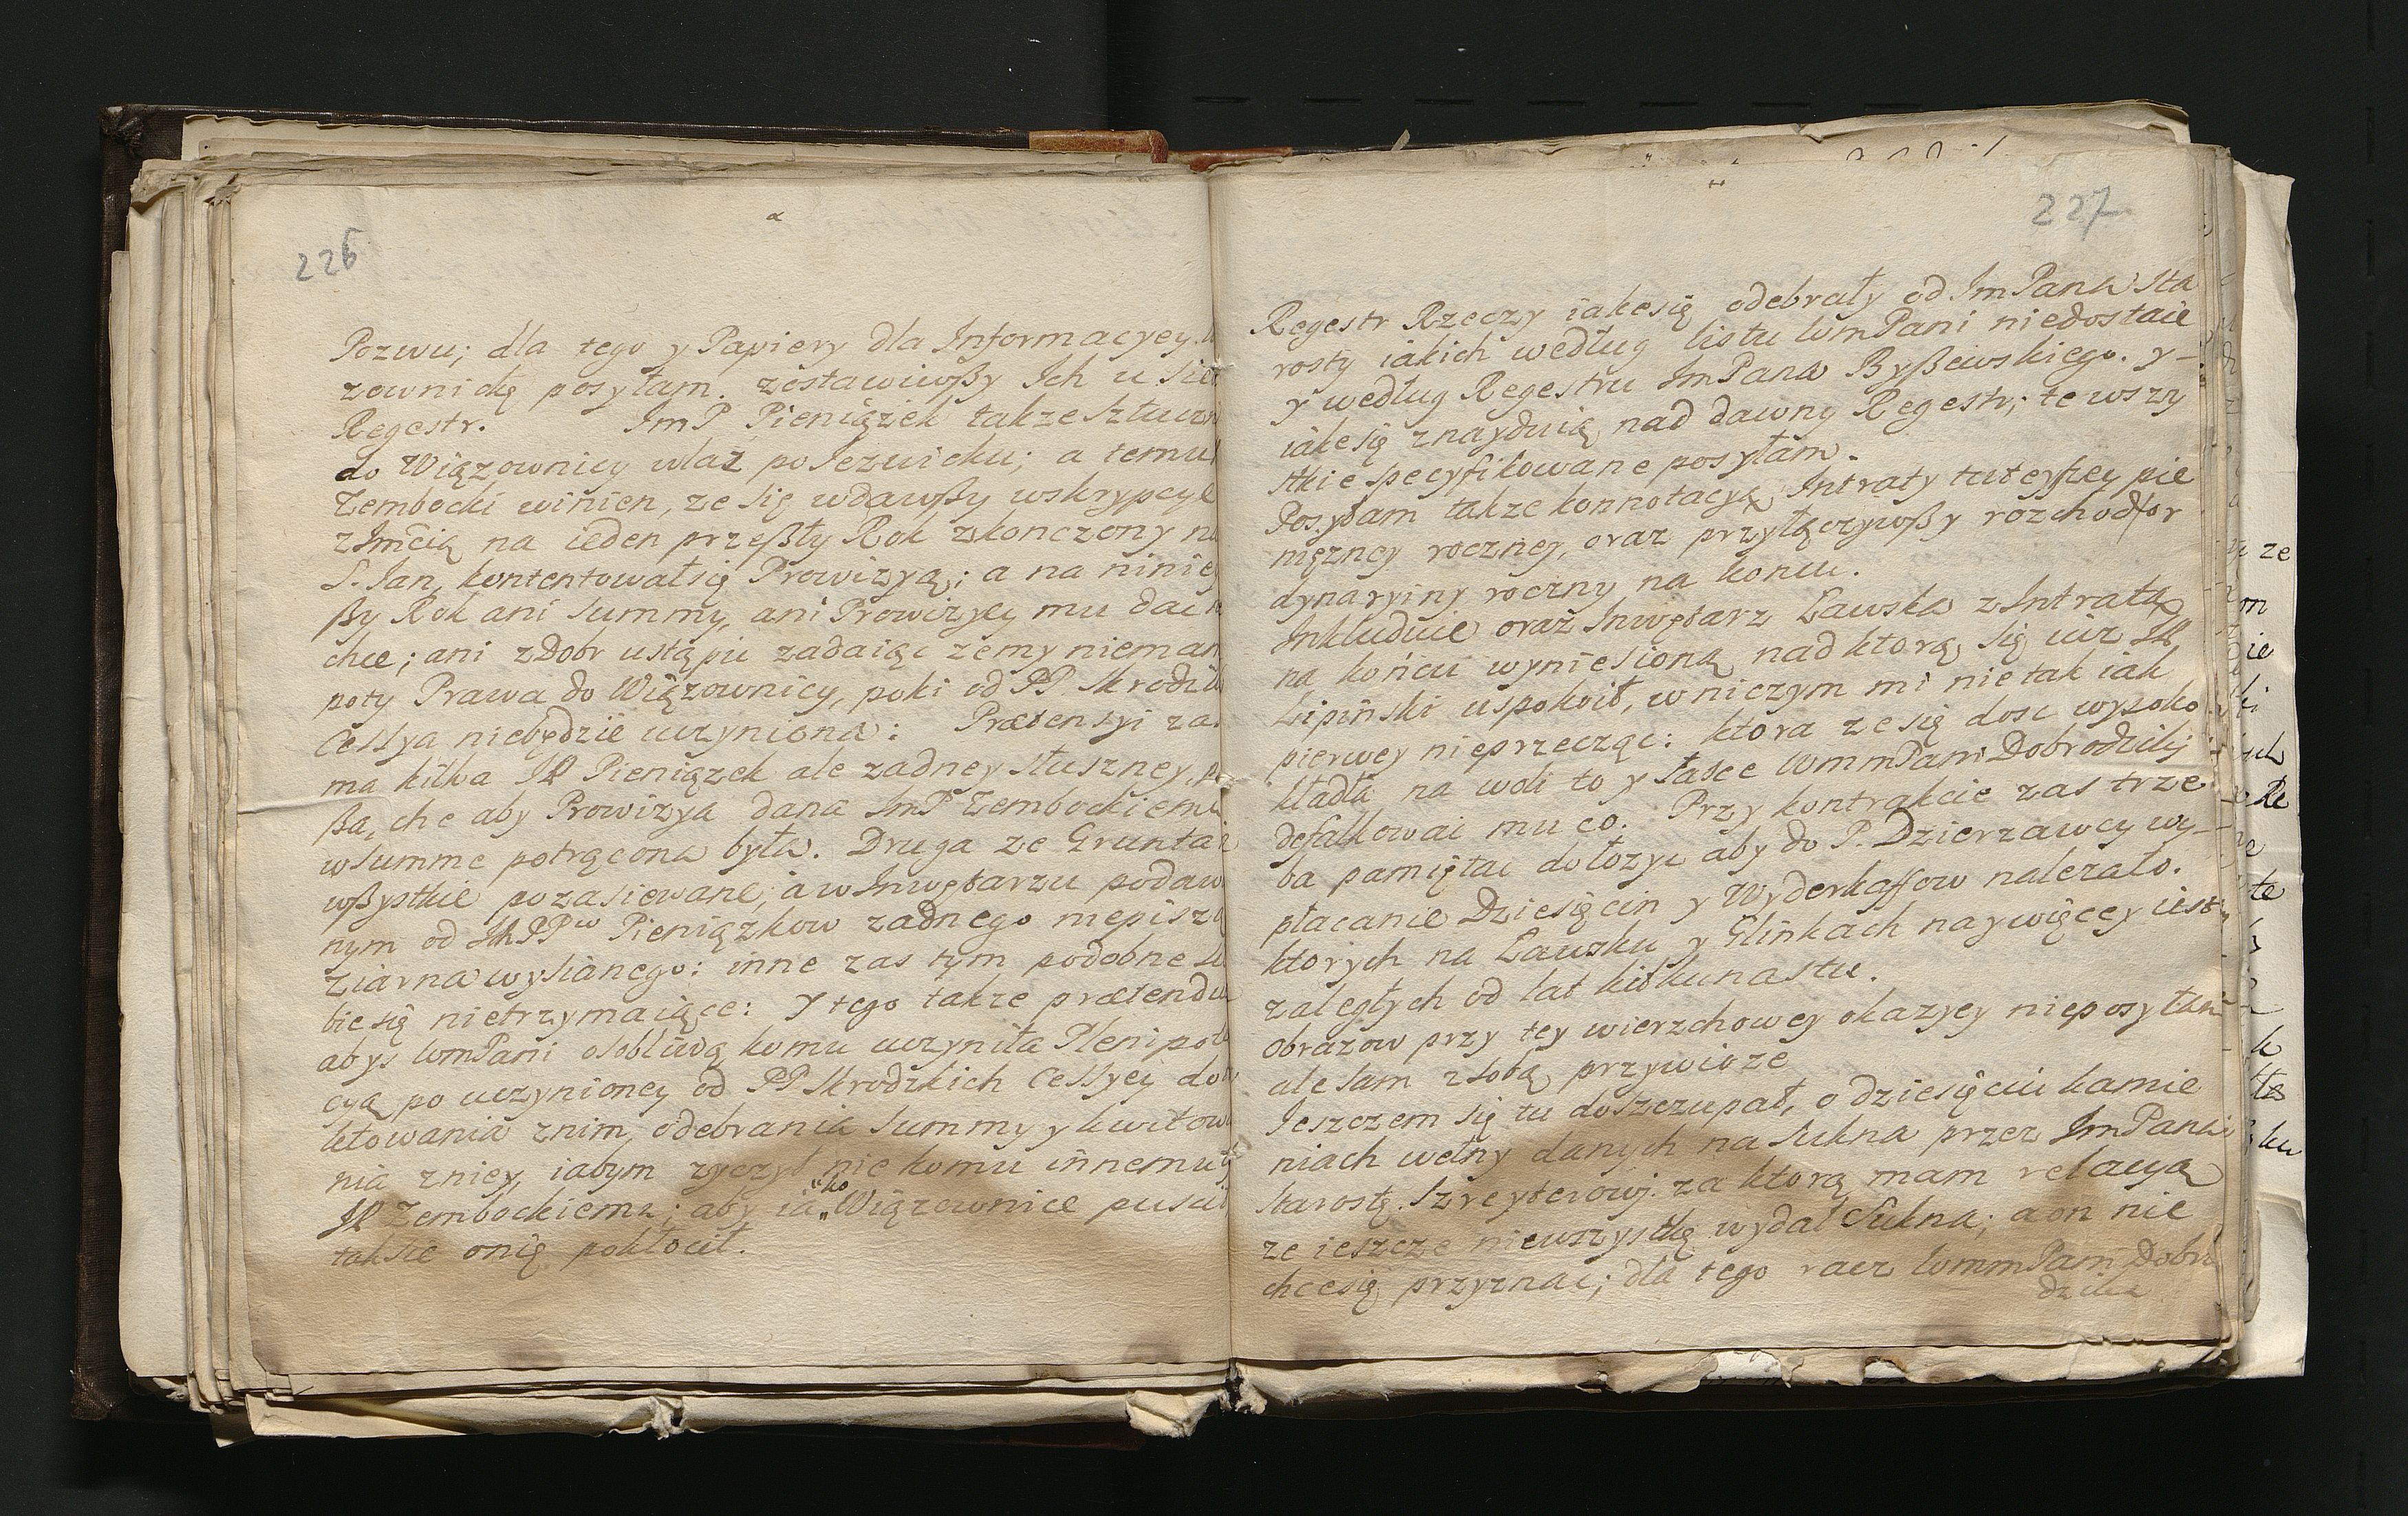 226
Pozwu; dla tego y Papiery dla Informacyey
zownickę posyłam. zostawiwßy Ich u
Regestr. ImP Pieniązek takze
do Wiązownicy wlaz po Iezuicku; a temu
Zembocki winien, ze się wdawßy wskrypcye
z Imcią na ieden przeßły Rok zkonczony
S. Ian, kontentowałsię Prowizyą; a na ninie
ßy Rok ani summy, ani Prowizyey mu dac
chce; ani z Dobr ustąpic zadaiąc ze my nie
poty Prawa do Wiązownicy, poki od PP. Skrodzk
Cessya niebędzie uczyniona: Prætensyi
ma kilka JP Pieniązek ale zadney słuszney,
ßa, che aby Prowizya dana ImP Zembockiemu
w summe potrącona była. Druga ze Grunta
wßystkie pozasiewane, a w Inwętarzu podaw
nym od PPw Pieniązkow zadnego niepiszą
ziarna wysianego: inne zas tym podobne
bie się nietrzymaiące: Y tego takze prætendu
abys WmPani osobliwą komu uczyniła Plenipot
cyą po uczynioney od PP Skrodzkich Cessyey do
ktowania znim, odebrania summy y kwitow
nia zniey, iabym zyczył nie komu innemu
JP Zembockiemu; aby iako Wiązownice puscił
taksie onię pokłocił.
227
Regestr Rzeczy iakesię odebrały od ImPana Sta
rosty iakich według listu WmPani niedostaie
y według Regestru ImPana Byßewskiego. y-
iakesię znayduią nad dawny Regestr; te wszy
stkie specyfikowane posyłam.
Posyłam takze konnotacyą Intraty tuteyszey pie
nięzney roczney, oraz przyłączywßy rozchod or
dynaryiny roczny na koncu.
Inkluduie oraz Inwętarz Ławska z Intratą
na końcu wyniesioną nad ktorą się iuz JP
Lipiński uspokoił, w niczym mi nie tak iak
pierwey nieprzecząc: ktora ze się dosc wysoko
kładła na woli to y łasce WmmPani Dobrodziki
defalkowac mu co. Przy kontrakcie zas trze
ba pamiętac dołozyc aby do P. Dzierzawcy wy-
płacanie Dziesięcin y Wyderkaffow nalezało.
ktorych na Ławsku y Glinkach naywięcey iest
zaległych od lat kilkunastu.
Obrazow przy tey wierzchowey okazyey nieposyłam
ale sam zsobą przywioze
Ieszczem się tu doszczupał, o dziesięciu kamie
niach wełny danych na Sukna przez ImPana
Starostę. za ktorą mam relacyą
ze ieszcze niewszystkę wydał Sukna; a on nie
chcesię przyznac; dla tego racz WmmPani Dobro
dzika